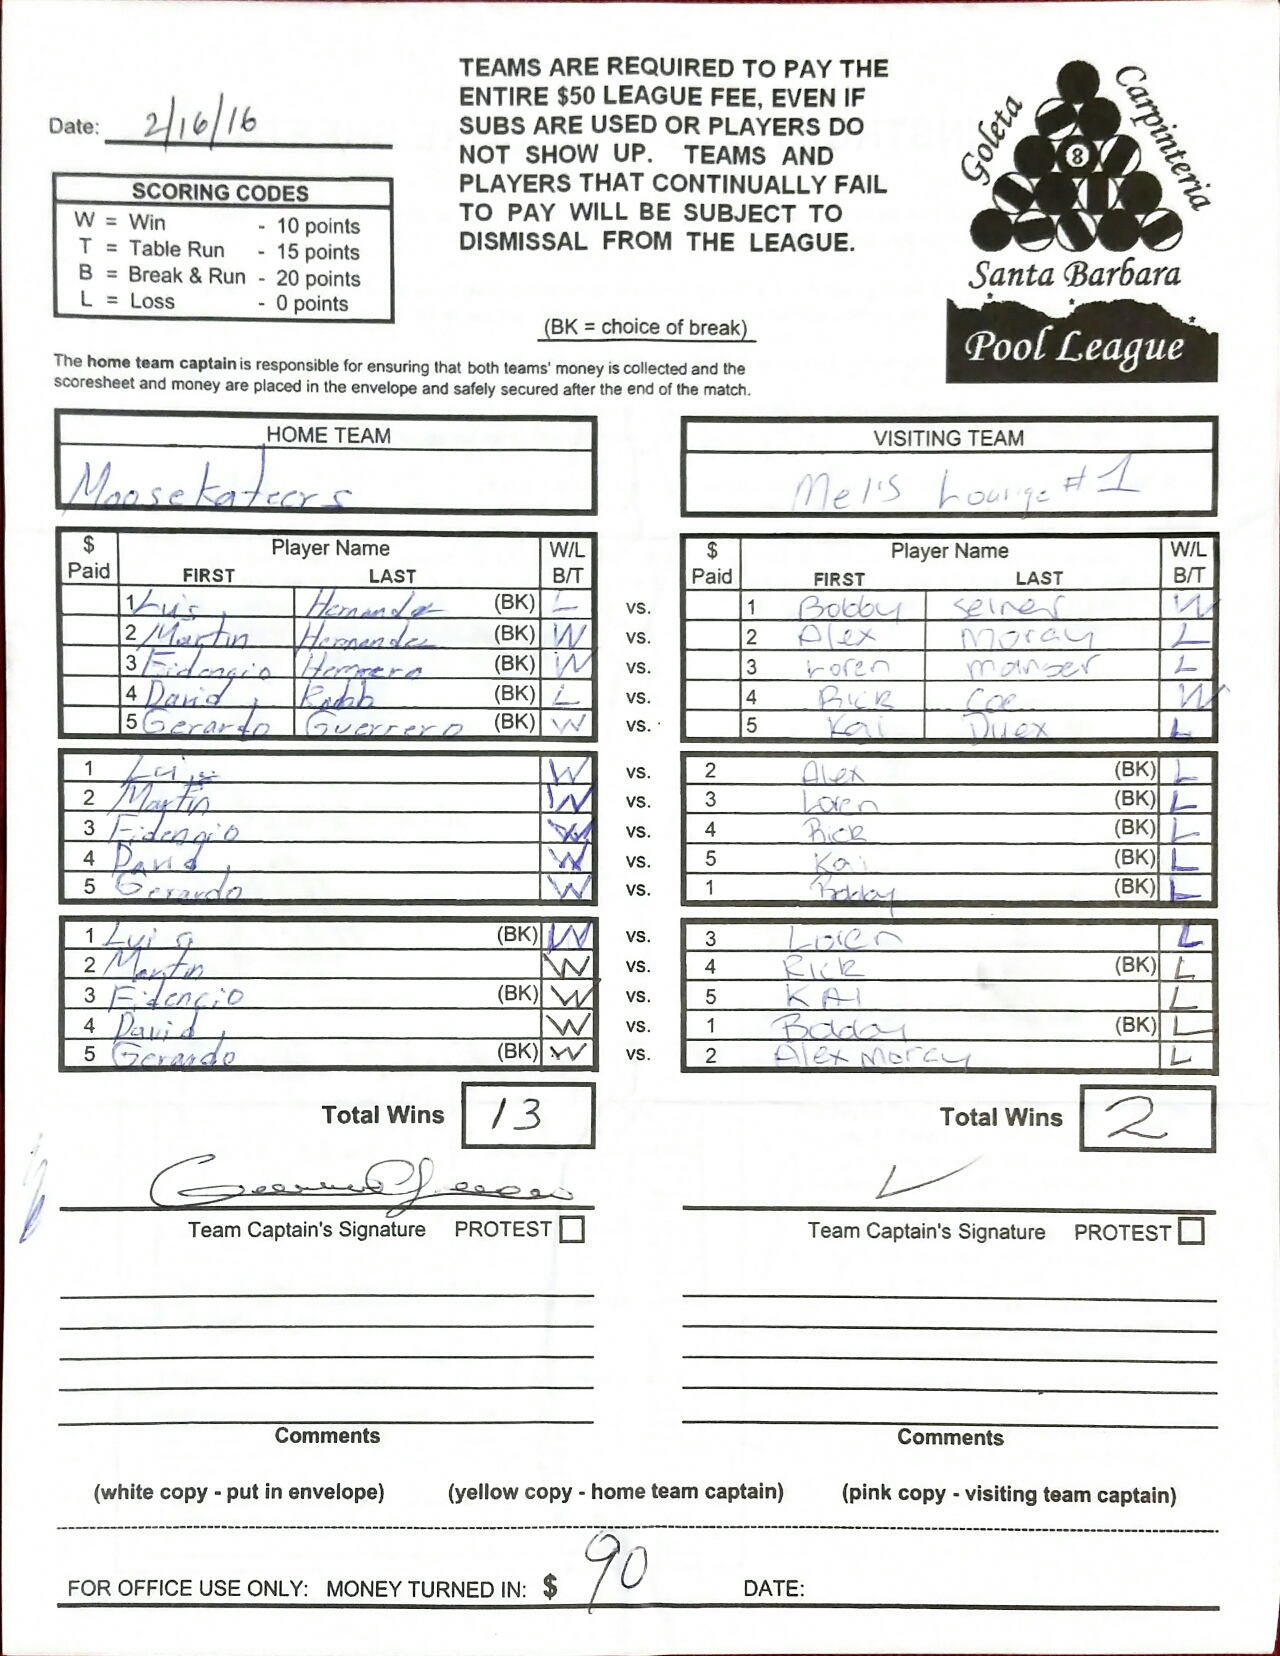 Date: 2/16/16
TEAMS ARE REQUIRED TO PAY THE
ENTIRE $50 LEAGUE FEE, EVEN IF
SUBS ARE USED OR PLAYERS DO
NOT SHOW UP. TEAMS AND
PLAYERS THAT CONTINUALLY FAIL
TO PAY WILL BE SUBJECT TO
DISMISSAL FROM THE LEAGUE.
Goleta
Carpinteria
8
Santa Barbara
Pool League
SCORING CODES
W = Win - 10 points
T = Table Run - 15 points
B = Break & Run - 20 points
L = Loss - 0 points
(BK = choice of break)
The home team captain is responsible for ensuring that both teams' money is collected and the
scoresheet and money are placed in the envelope and safely secured after the end of the match.
HOME TEAM VISITING TEAM
Moosekateers Mel's Lounge #1
$ Paid Player Name FIRST LAST W/L B/T
$ Paid Player Name FIRST LAST W/L B/T
1 Luis Hernandez (BK) L vs. 1 Bobby seiner W
2 Martin Hernandez (BK) W vs. 2 Alex Moray L
3 Fidencio Herrera (BK) W vs. 3 Loren manser L
4 David Robb (BK) L vs. 4 Rick Coe W
5 Gerardo Guerrero (BK) W vs. 5 Kai Duex L
1 Luis W vs. 2 Alex (BK) L
2 Martin W vs. 3 Loren (BK) L
3 Fidencio W vs. 4 Rick (BK) L
4 David W vs. 5 Kai (BK) L
5 Gerardo W vs. 1 Bobby (BK) L
1 Luis (BK) W vs. 3 Loren L
2 Martin W vs. 4 Rick (BK) L
3 Fidencio (BK) W vs. 5 KAI L
4 David W vs. 1 Bobby (BK) L
5 Gerardo (BK) W vs. 2 Alex Moray L
Total Wins 13 Total Wins 2
Team Captain's Signature PROTEST Team Captain's Signature PROTEST
Comments Comments
(white copy - put in envelope) (yellow copy - home team captain) (pink copy - visiting team captain)
FOR OFFICE USE ONLY: MONEY TURNED IN: $ 90 DATE: